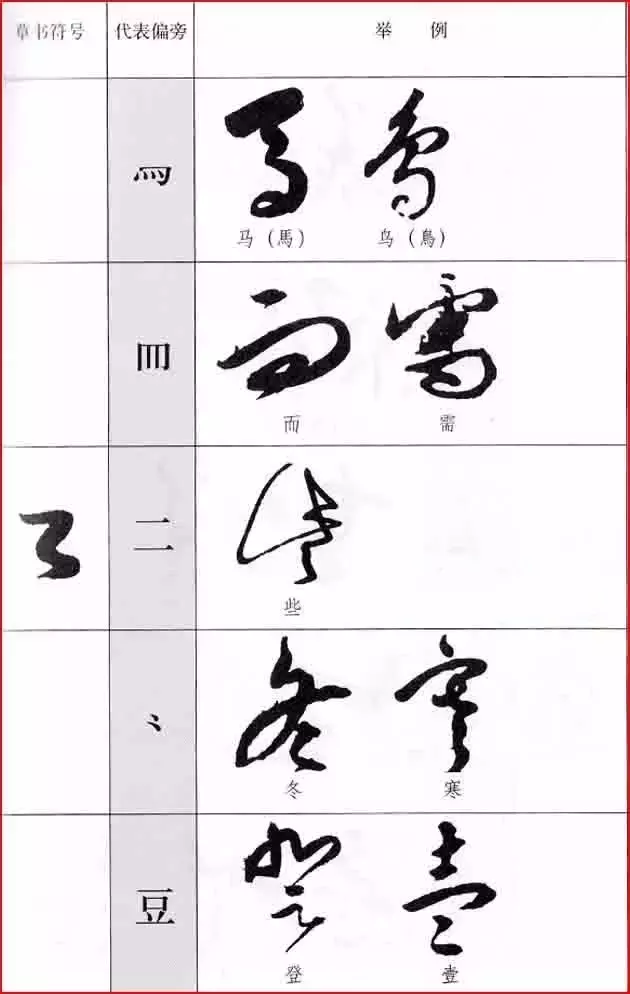 草书符号 代表偏旁 举例
马(馬) 鸟(鳥)
而 需
二
些
⺀
冬 寒
豆
登 壹